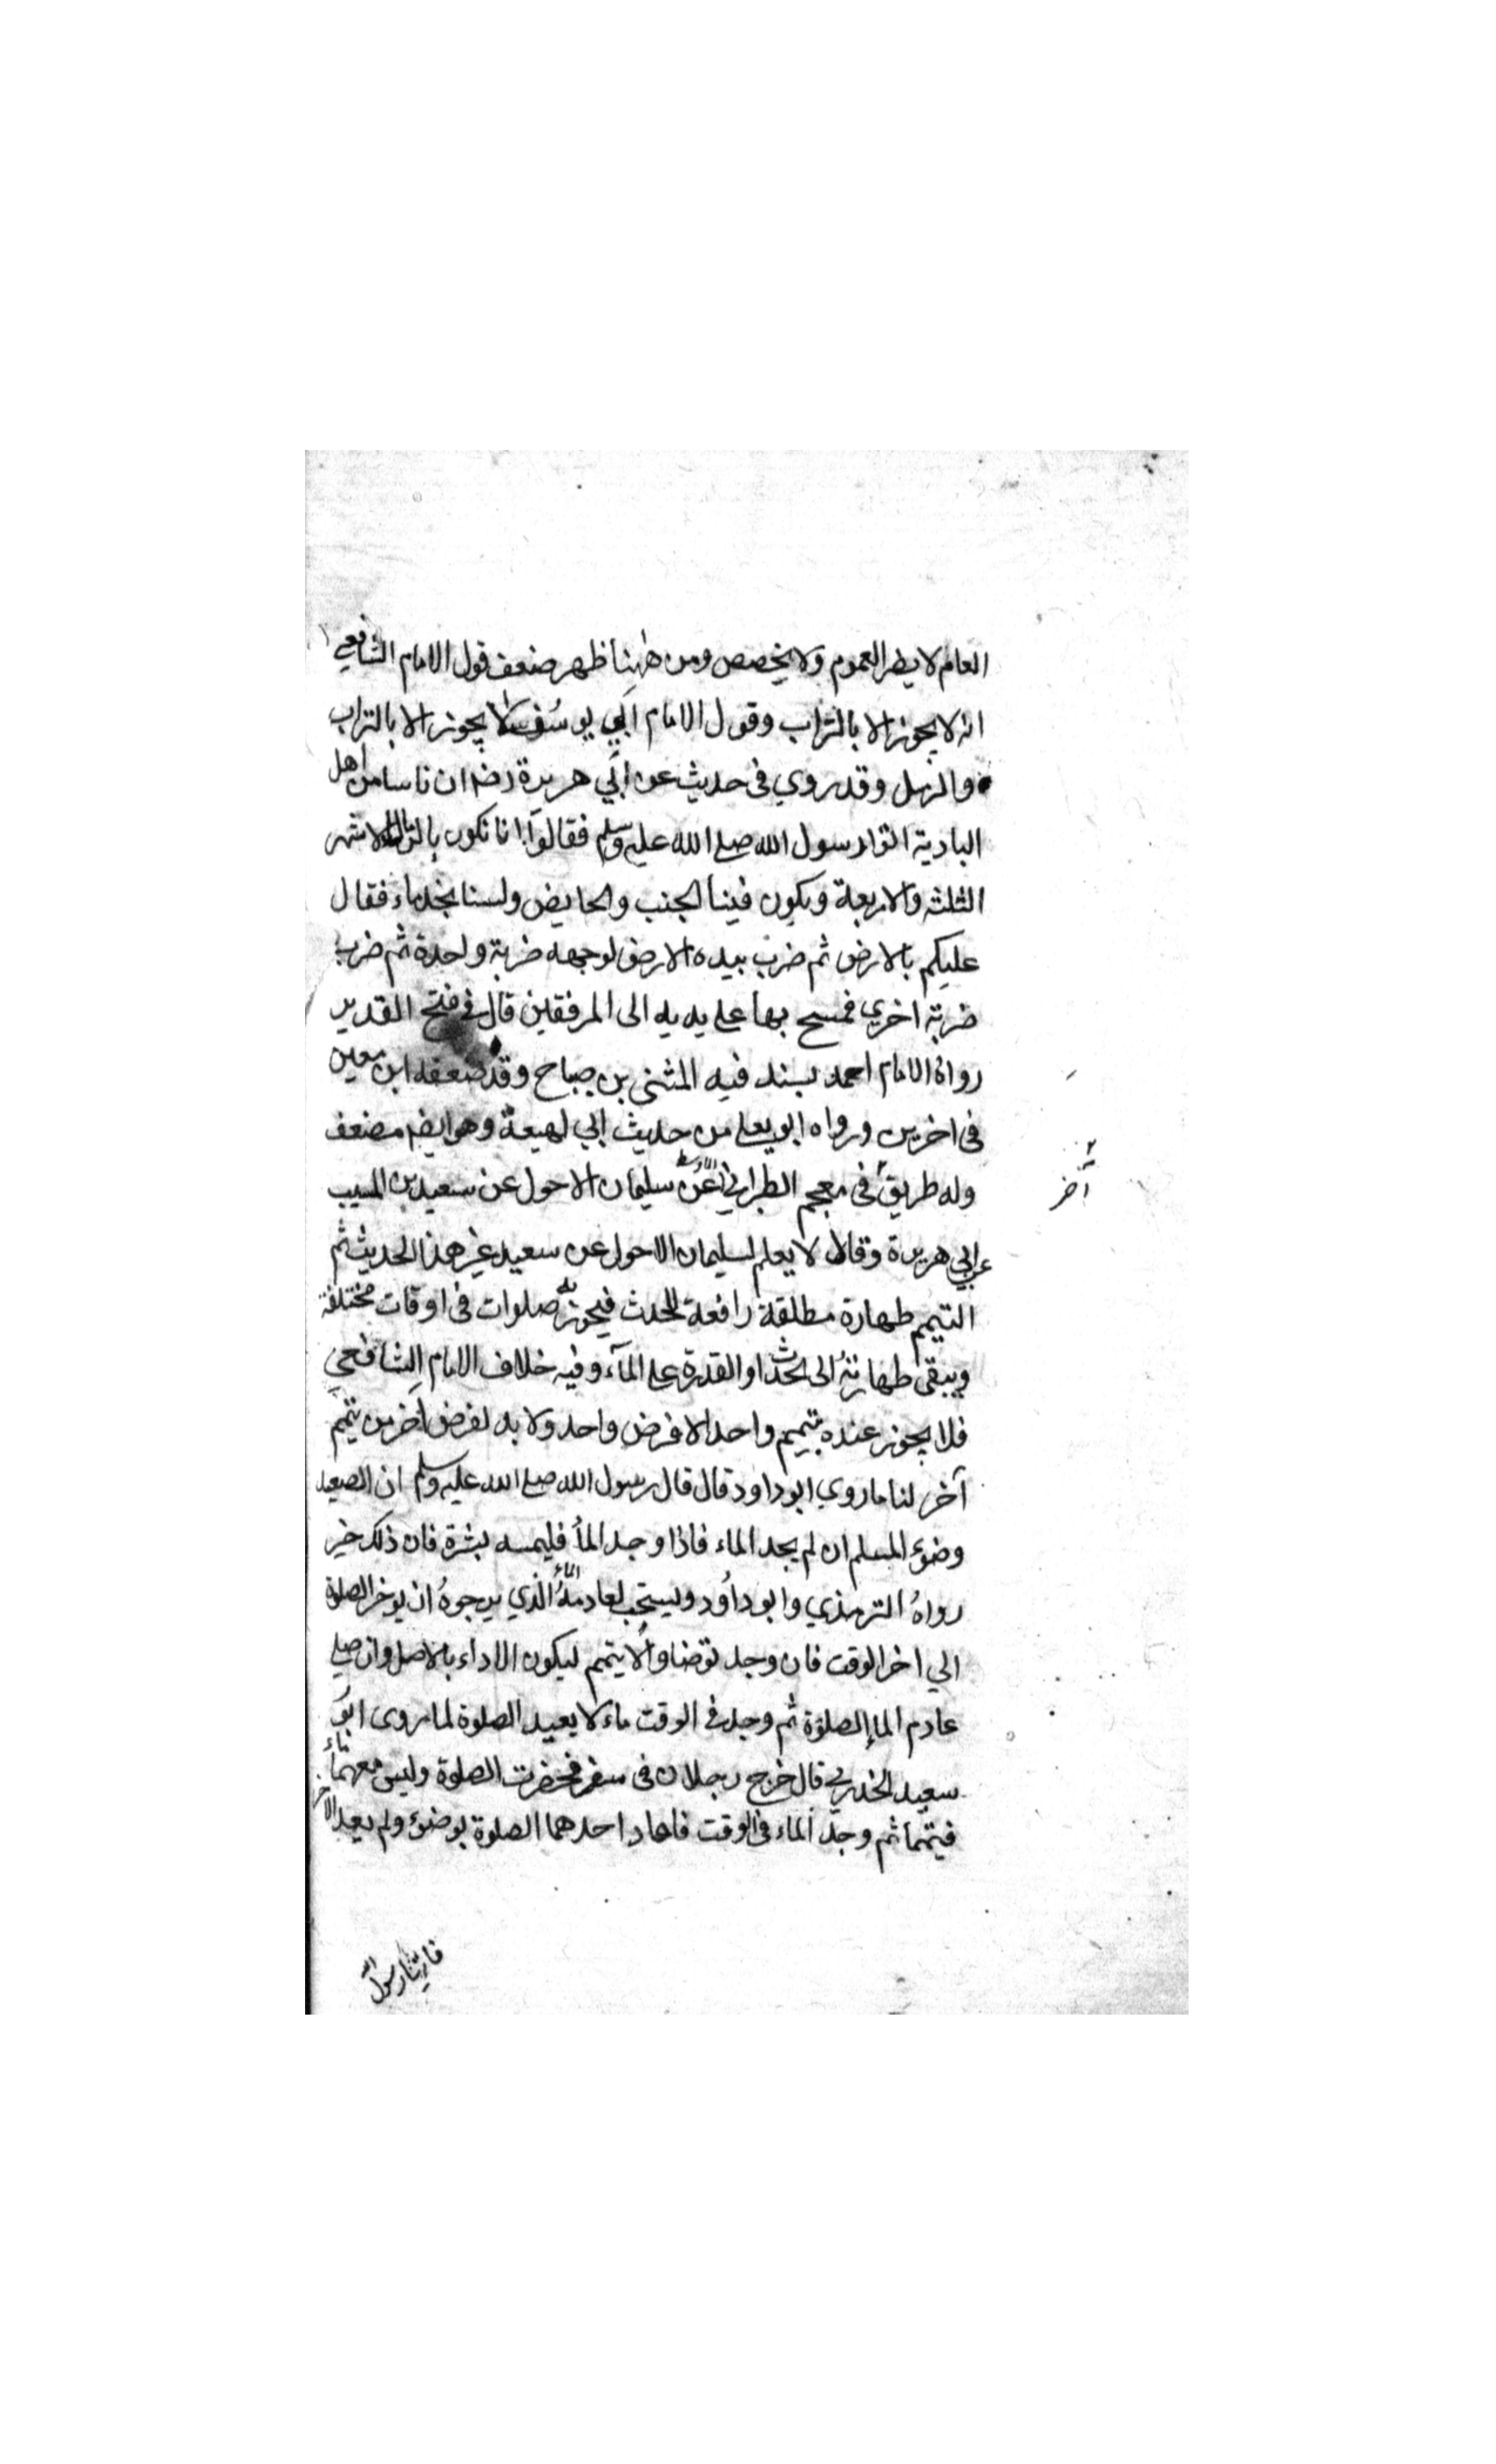 العام لا يبطل العموم ولا يخصص ومن ههنا ظهر ضعف قول الامام الشافعي
انه لا يجوز الا بالتراب وقول الامام ابي يوسف لا يجوز الا بالتراب
والرمل وقد روي في حديث عن ابي هريرة رضه ان ناسا من اهل
البادية اتوا رسول الله صلى الله عليه وسلم فقالوا انا نكون بالرمال الاشهر
الثلثه والاربعة ويكون فينا الجنب والحايض ولسنا نجد ماء فقال
عليكم بالارض ثم ضرب بيده الارض لوجهه ضربة واحدة ثم ضرب
ضربة اخري فمسح بها على يديه الى المرفقين قال في فتح القدير
رواه الامام احمد بسند فيه المثنى بن صباح وقد ضعفه ابن معين
فى اخرين ورواه ابو يعلى من حديث ابي لهيعة وهو ايضا مضعف
وله طريق آخر فى معجم الطبراني الاوسط عن سليمان الاحول عن سعيد بن المسيب
عن ابي هريرة وقال لا يعلم لسليمان الاحول عن سعيد غير هذا الحديث ثم
التيمم طهارة مطلقة رافعة للحدث فيجوز به صلوات فى اوقات مختلفة
ويبقى طهارته الى الحدث او القدرة على المآء وفيه خلاف الامام الشافعي
فلا يجوز عنده بتيمم واحد الا فرض واحد ولا بد لفرض آخر من تيمم
آخر لنا ما روي ابو داود قال قال رسول الله صلى الله عليه وسلم ان الصعيد
وضوء المسلم ان لم يجد الماء فاذا وجد الماء فليمسه بشرة فان ذلك خير
رواه الترمذي وابو داود ويستحب لعادم الماء الذي يرجوه ان يوخر الصلوة
الي اخر الوقت فان وجد توضا والا يتيمم ليكون الاداء بالاصل وان صلى
عادم الماء الصلوة ثم وجد في الوقت ماء لا يعيد الصلوة لما روى ابو
سعيد الخدري قال خرج رجلان فى سفر فحضرت الصلوة وليس معهما ماء
فتيمما ثم وجد الماء فى الوقت فاعاد احدهما الصلوة بوضوء ولم يعد الاخر
فاتيا رسول الله